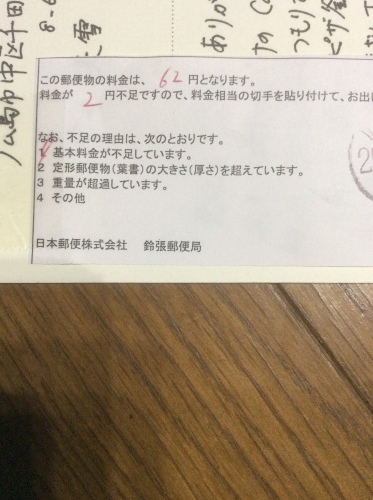 広島市中区千田
8-6
雪
ありが
すの
つもりで
ピザ釜
この郵便物の料金は、 62 円となります。
料金が 2 円不足ですので、料金相当の切手を貼り付けて、お出し
なお、不足の理由は、次のとおりです。
1 基本料金が不足しています。
2 定形郵便物(葉書)の大きさ(厚さ)を超えています。
3 重量が超過しています。
4 その他
日本郵便株式会社 鈴張郵便局